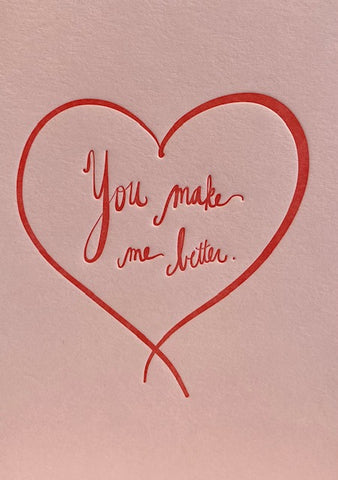 You make
me better.